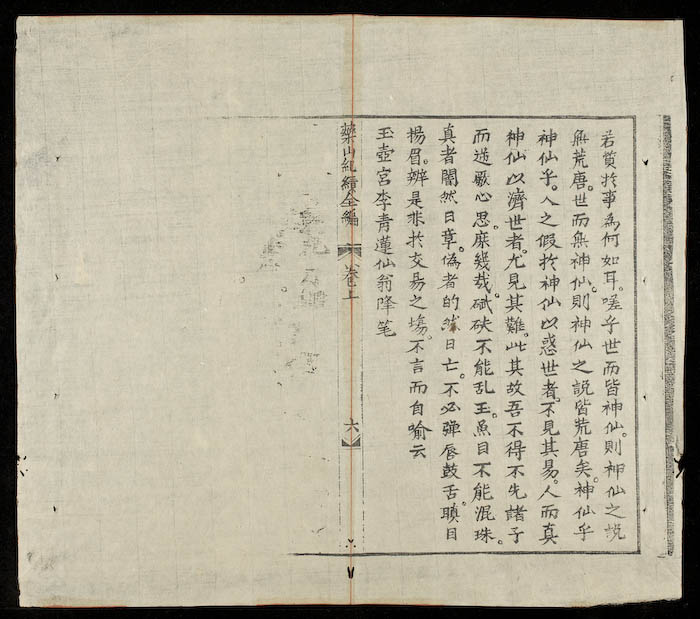 若質扵事為何如耳。嗟乎世而皆神仙。則神仙之說
無荒唐。世而無神仙。則神仙之說皆荒唐矣。神仙乎
神仙乎。人之假扵神仙以惑世者。不見其易。人而真
神仙以濟世者。尤見其難。此其故吾不得不先諸子
而逆厥心思。庶幾哉。碔砆不能乱玉。魚目不能混珠。
真者闇然日章。偽者的然日亡。不必弹唇鼓舌。瞋目
揚眉。辨是非扵交易之塲。不言而自喻云
玉壺宮李青蓮仙翁降笔
藥山紀績全編 卷上 六